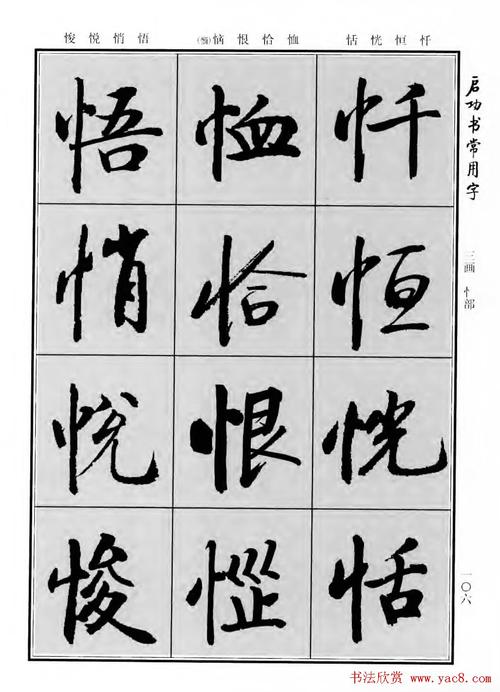 忏恒恍恬 恤恰恨恼(惱) 悟悄悦悛
启功书常用字
三画 忄部
一〇六
忏恒恍恬
恤恰恨惱
悟悄悦悛
书法欣赏 www.yac8.com